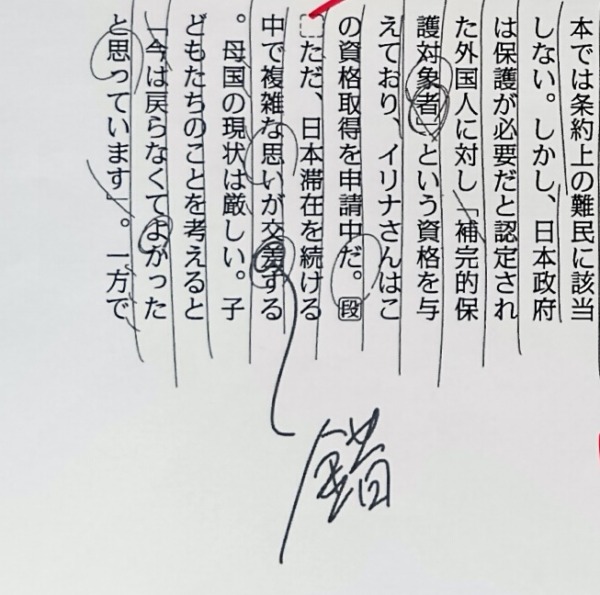 本では条約上の難民に該当
しない。しかし、日本政府
は保護が必要だと認定され
た外国人に対し「補完的保
護対象者」という資格を与
えており、イリナさんはこ
の資格取得を申請中だ。段
ただ、日本滞在を続ける
中で複雑な思いが交差する
。母国の現状は厳しい。子
どもたちのことを考えると
「今は戻らなくてよかった
と思っています」。一方で
錯